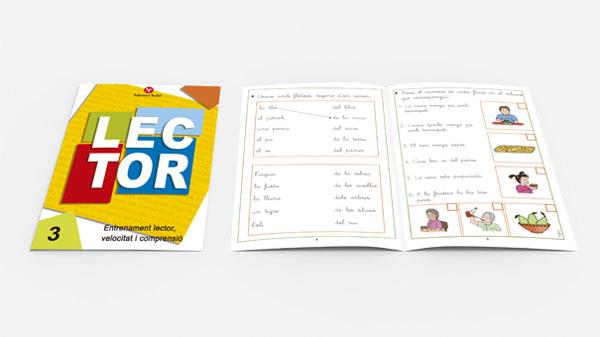 LEC
TOR
3
Entrenament lector,
velocitat i comprensió
Uneix amb fletxes, segons d'on
la llet del blat
el petroli de la vaca
una poma del raïm
el pa de la terra
el vi del pomer
L'aigua de la
la fusta de les ovelles
la llana dels arbres
un de les olives
del riu
Posa el número de cada frase en el dibuix
que correspongui.
1. La nena menja pa amb
tomàquet.
2. també menja pa amb
tomàquet.
3. El nen menja sopa.
4.
5. La coca està preparada.
6. A la fruitera hi ha tres
peres.